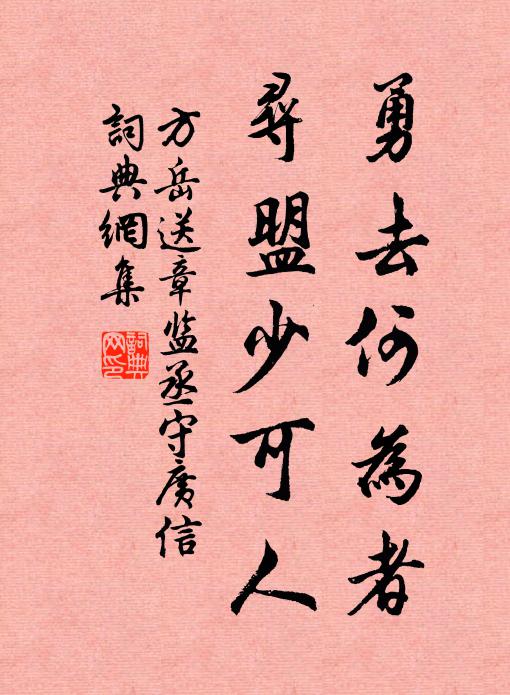 勇去何為者
尋盟少可人
方岳送章监丞守廣信
詞典網集
詞典網印